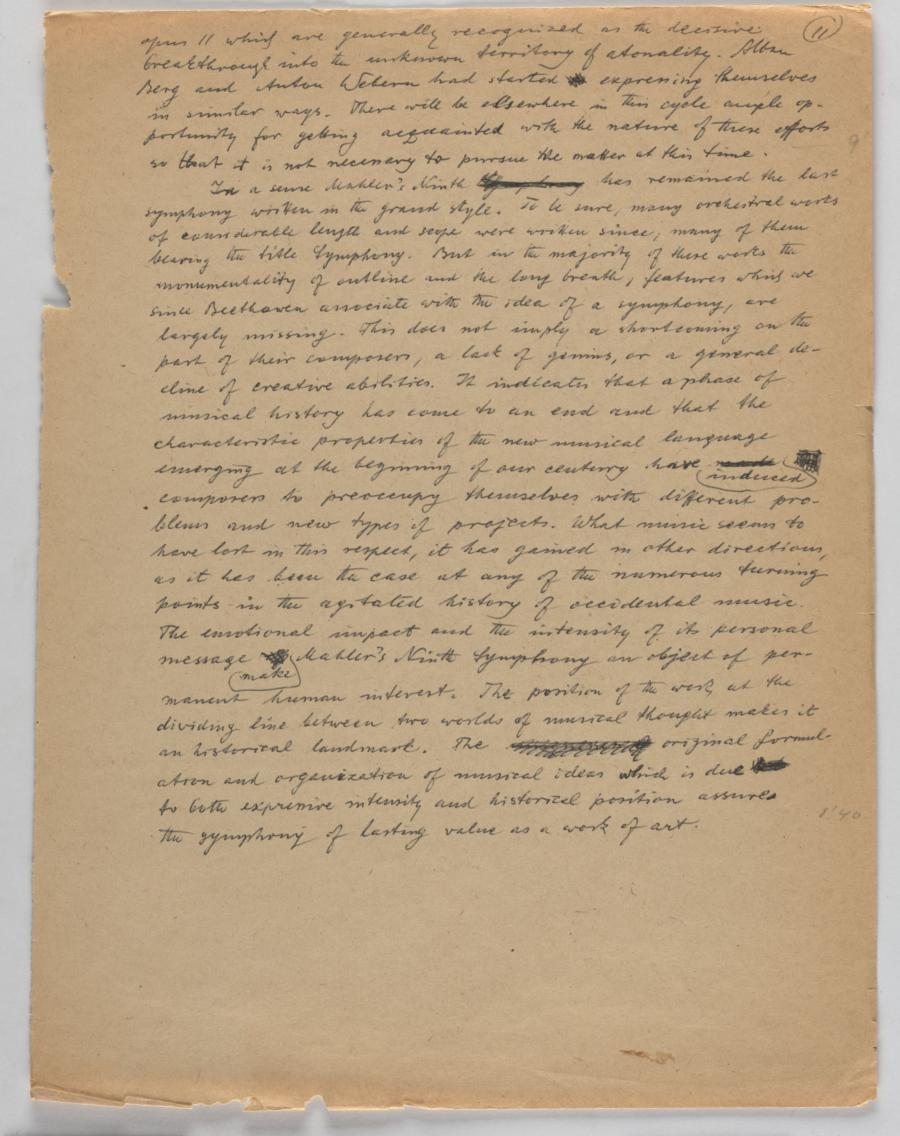 11
opus 11 which are generally recognized as the decisive
breakthrough into the unknown territory of atonality. Alban
Berg and Anton Webern had started expressing themselves
in similar ways. There will be elsewhere in this cycle ample op-
portunity for getting acquainted with the nature of these efforts
so that it is not necessary to pursue the matter at this time.
In a sense Mahler's Ninth has remained the last
symphony written in the grand style. To be sure, many orchestral works
of considerable length and scope were written since, many of them
bearing the title Symphony. But in the majority of these works the
monumentality of outline and the long breath, features which we
since Beethoven associate with the idea of a symphony, are
largely missing. This does not imply a shortcoming on the
part of their composers, a lack of genius, or a general de-
cline of creative abilities. It indicates that a phase of
musical history has come to an end and that the
characteristic properties of the new musical language
emerging at the beginning of our century have made
induced
composers to preoccupy themselves with different pro-
blems and new types of projects. What music seems to
have lost in this respect, it has gained in other directions,
as it has been the case at any of the numerous turning
points in the agitated history of occidental music.
The emotional impact and the intensity of its personal
message Mahler's Ninth Symphony an object of per-
make
manent human interest. The position of the work at the
dividing line between two worlds of musical thought makes it
an historical landmark. The original formul-
ation and organization of musical ideas which is due
to both expressive intensity and historical position assures
the symphony of lasting value as a work of art.